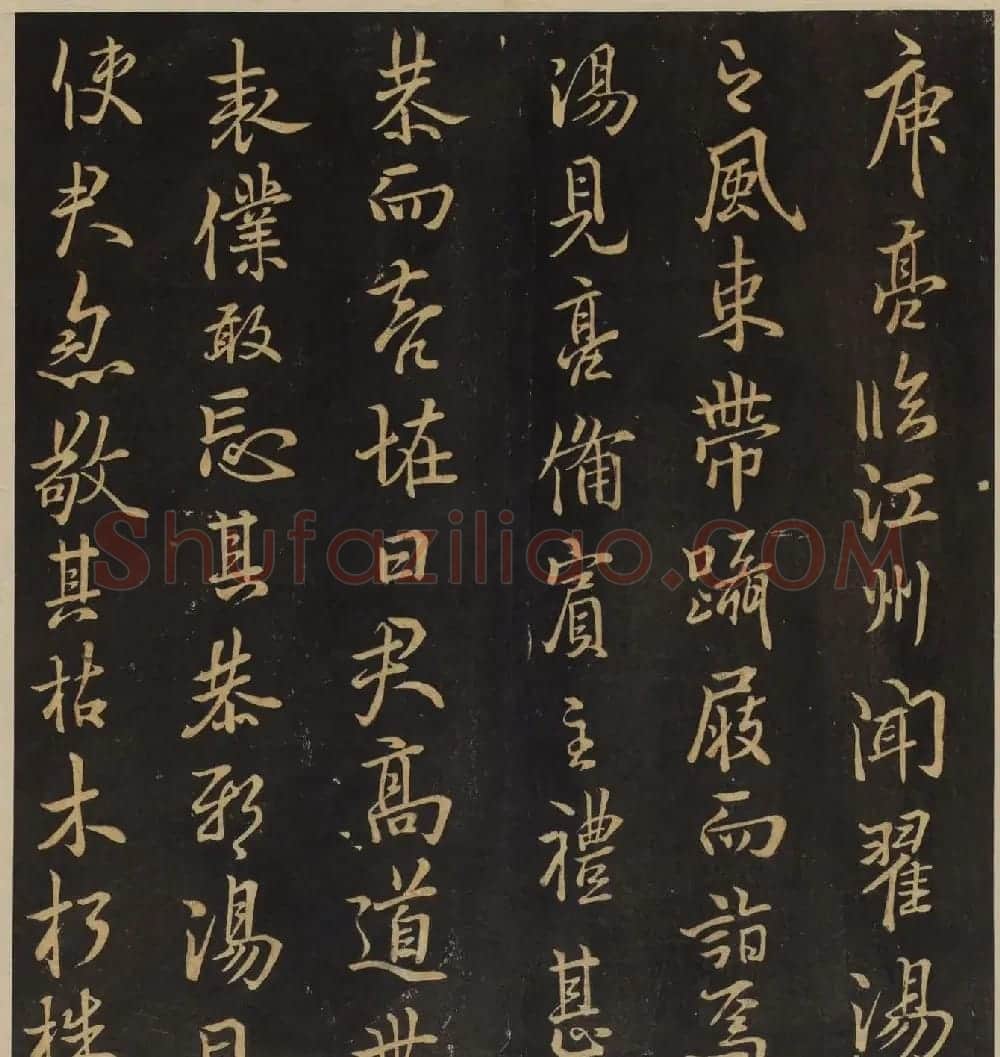 庾亮臨江州聞翟湯
之風束帶躡屐而詣焉
湯見亮備賓主禮甚
恭而曰君高道世
表僕敢忘其恭邪湯曰
使君忽敬其枯木朽株
Shufaziliao.COM